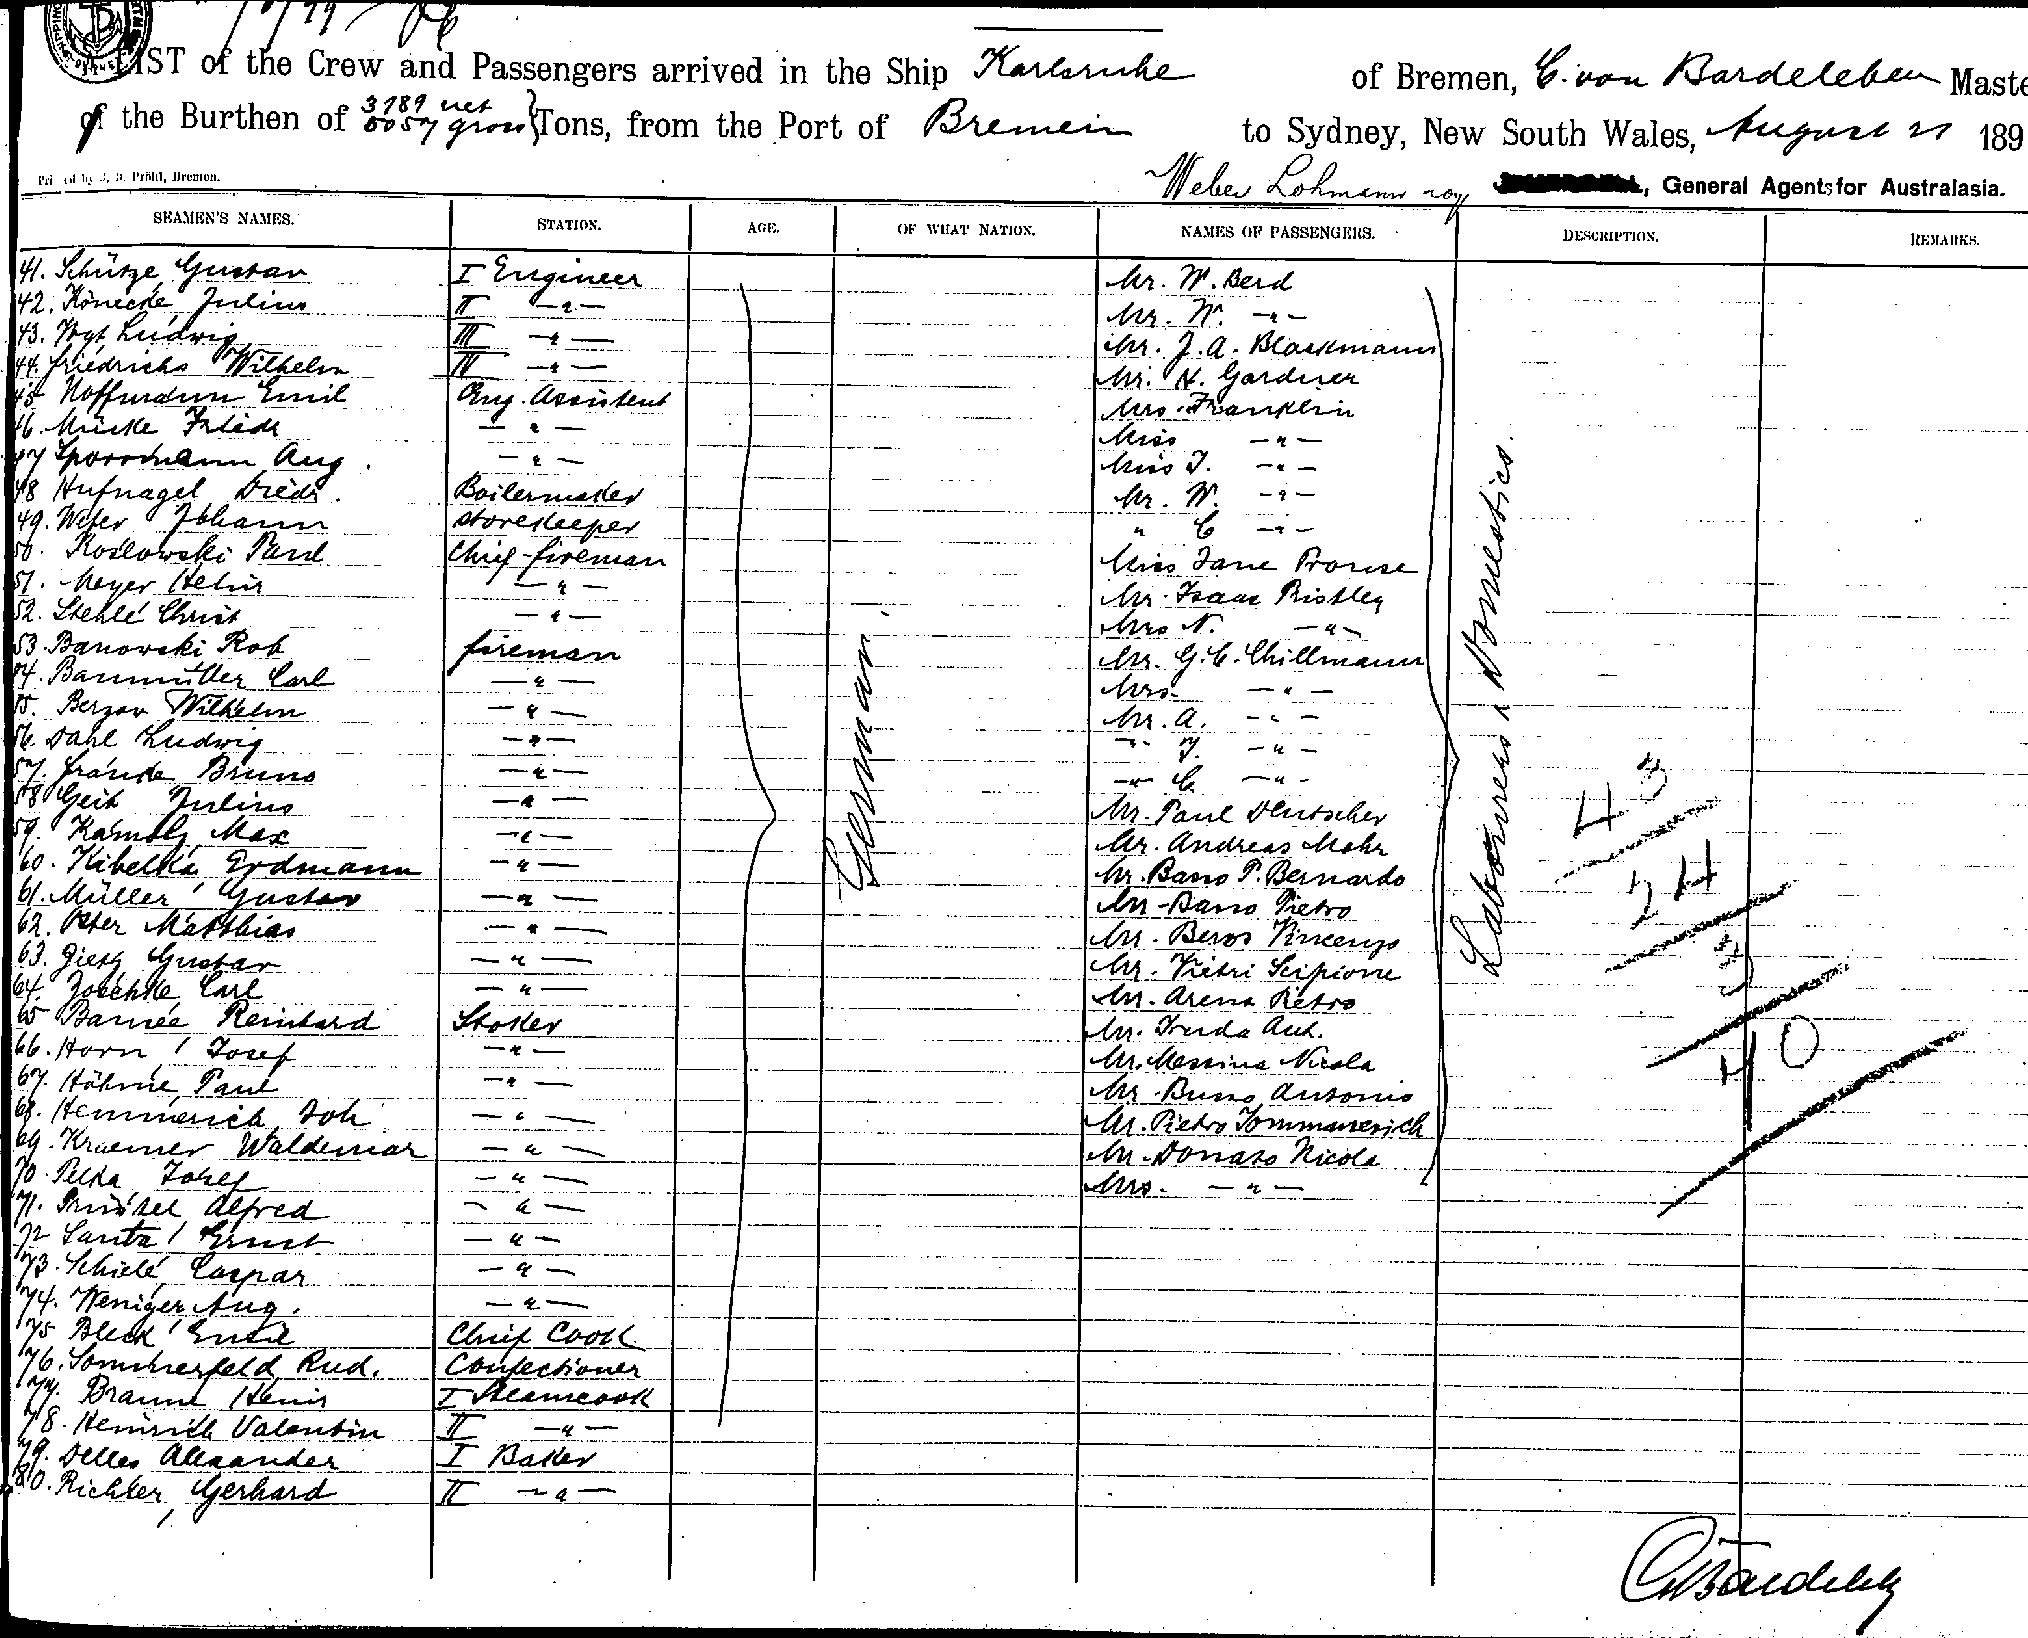 LIST of the Crew and Passengers arrived in the Ship Karlsruhe of Bremen, C. von Bardeleben Maste
of the Burthen of 3789 net 5057 gross Tons, from the Port of Bremen to Sydney, New South Wales, August 21 189
Weber Lohmann , General Agents for Australasia.
SEAMEN'S NAMES. STATION. AGE. OF WHAT NATION. NAMES OF PASSENGERS. DESCRIPTION. REMARKS.
41. Schütze Gustav I Engineer Mr. W. Berd
42. Könecke, Julius II -"- Mr. W. -"-
43. Vogt Ludwig III -"- Mr. J. A. Blackmann
44. Friedrichs Wilhelm IV -"- Mr. H. Gardner
45 Hoffmann Emil Eng. Assistent Mrs. Franklin
46. Mücke Friedr -"- Miss -"-
47 Aug. -"- Miss J. -"-
48 Hufnagel Diedr. Boilermaker Mr. W. -"-
49. Weber Johann Storekeeper " C -"-
50. Koslowski Paul Chief fireman Miss Jane Prouse
51. Meyer Heinr -"- Mr. Isaac Ristley
52. Stehle Christ -"- Mrs N. -"-
53. Banowski Rob fireman Mr. G. C. Chillmann
54. Baumüller Carl -"- Mrs. -"-
55. Berzow Wilhelm -"- Mr. A. -"-
56. Dahl Ludwig -"- -"- J. -"-
57. Francke, Bruno -"- -"- C. -"-
58 Geib Julius -"- Mr. Paul Deutscher
59. Max -"- Mr. Andreas Mohr
60. Kibelka, Erdmann -"- Mr. Basso P. Bernardo
61. Müller Gustav -"- Mr. Basso Pietro
62. Oster Matthias -"- Mr. Beros Vincenzo
63. Gustav -"- Mr. Vietri Scipione
64. Zoschke, Carl -"- Mr. Arena Pietro
65 Barnée Reinhard Stoker Mr. Ant.
66. Horn Josef -"- Mr. Messina Nicola
67. Höhne, Paul -"- Mr. Busso Antonio
68. Hemmerich, Joh -"- Mr. Pietro Tommanevich
69. Kraemer Waldemar -"- Mr. Donato Nicola
70. Pelka Josef -"- Mrs. -"-
71. Alfred -"-
72 Santa Ernst -"-
73. Schiele, Caspar -"-
74. Weniger Aug. -"-
75 Bleck Emil Chief Cook
76. Sommerfeld, Rud. Confectioner
77. Braune Heinr I Steamcook
78. Heinrich Valentin II -"-
79. Delles Alexander I Baker
80. Richter, Gerhard II -"-
German
Labourers & Domestics.
43
24
3
40